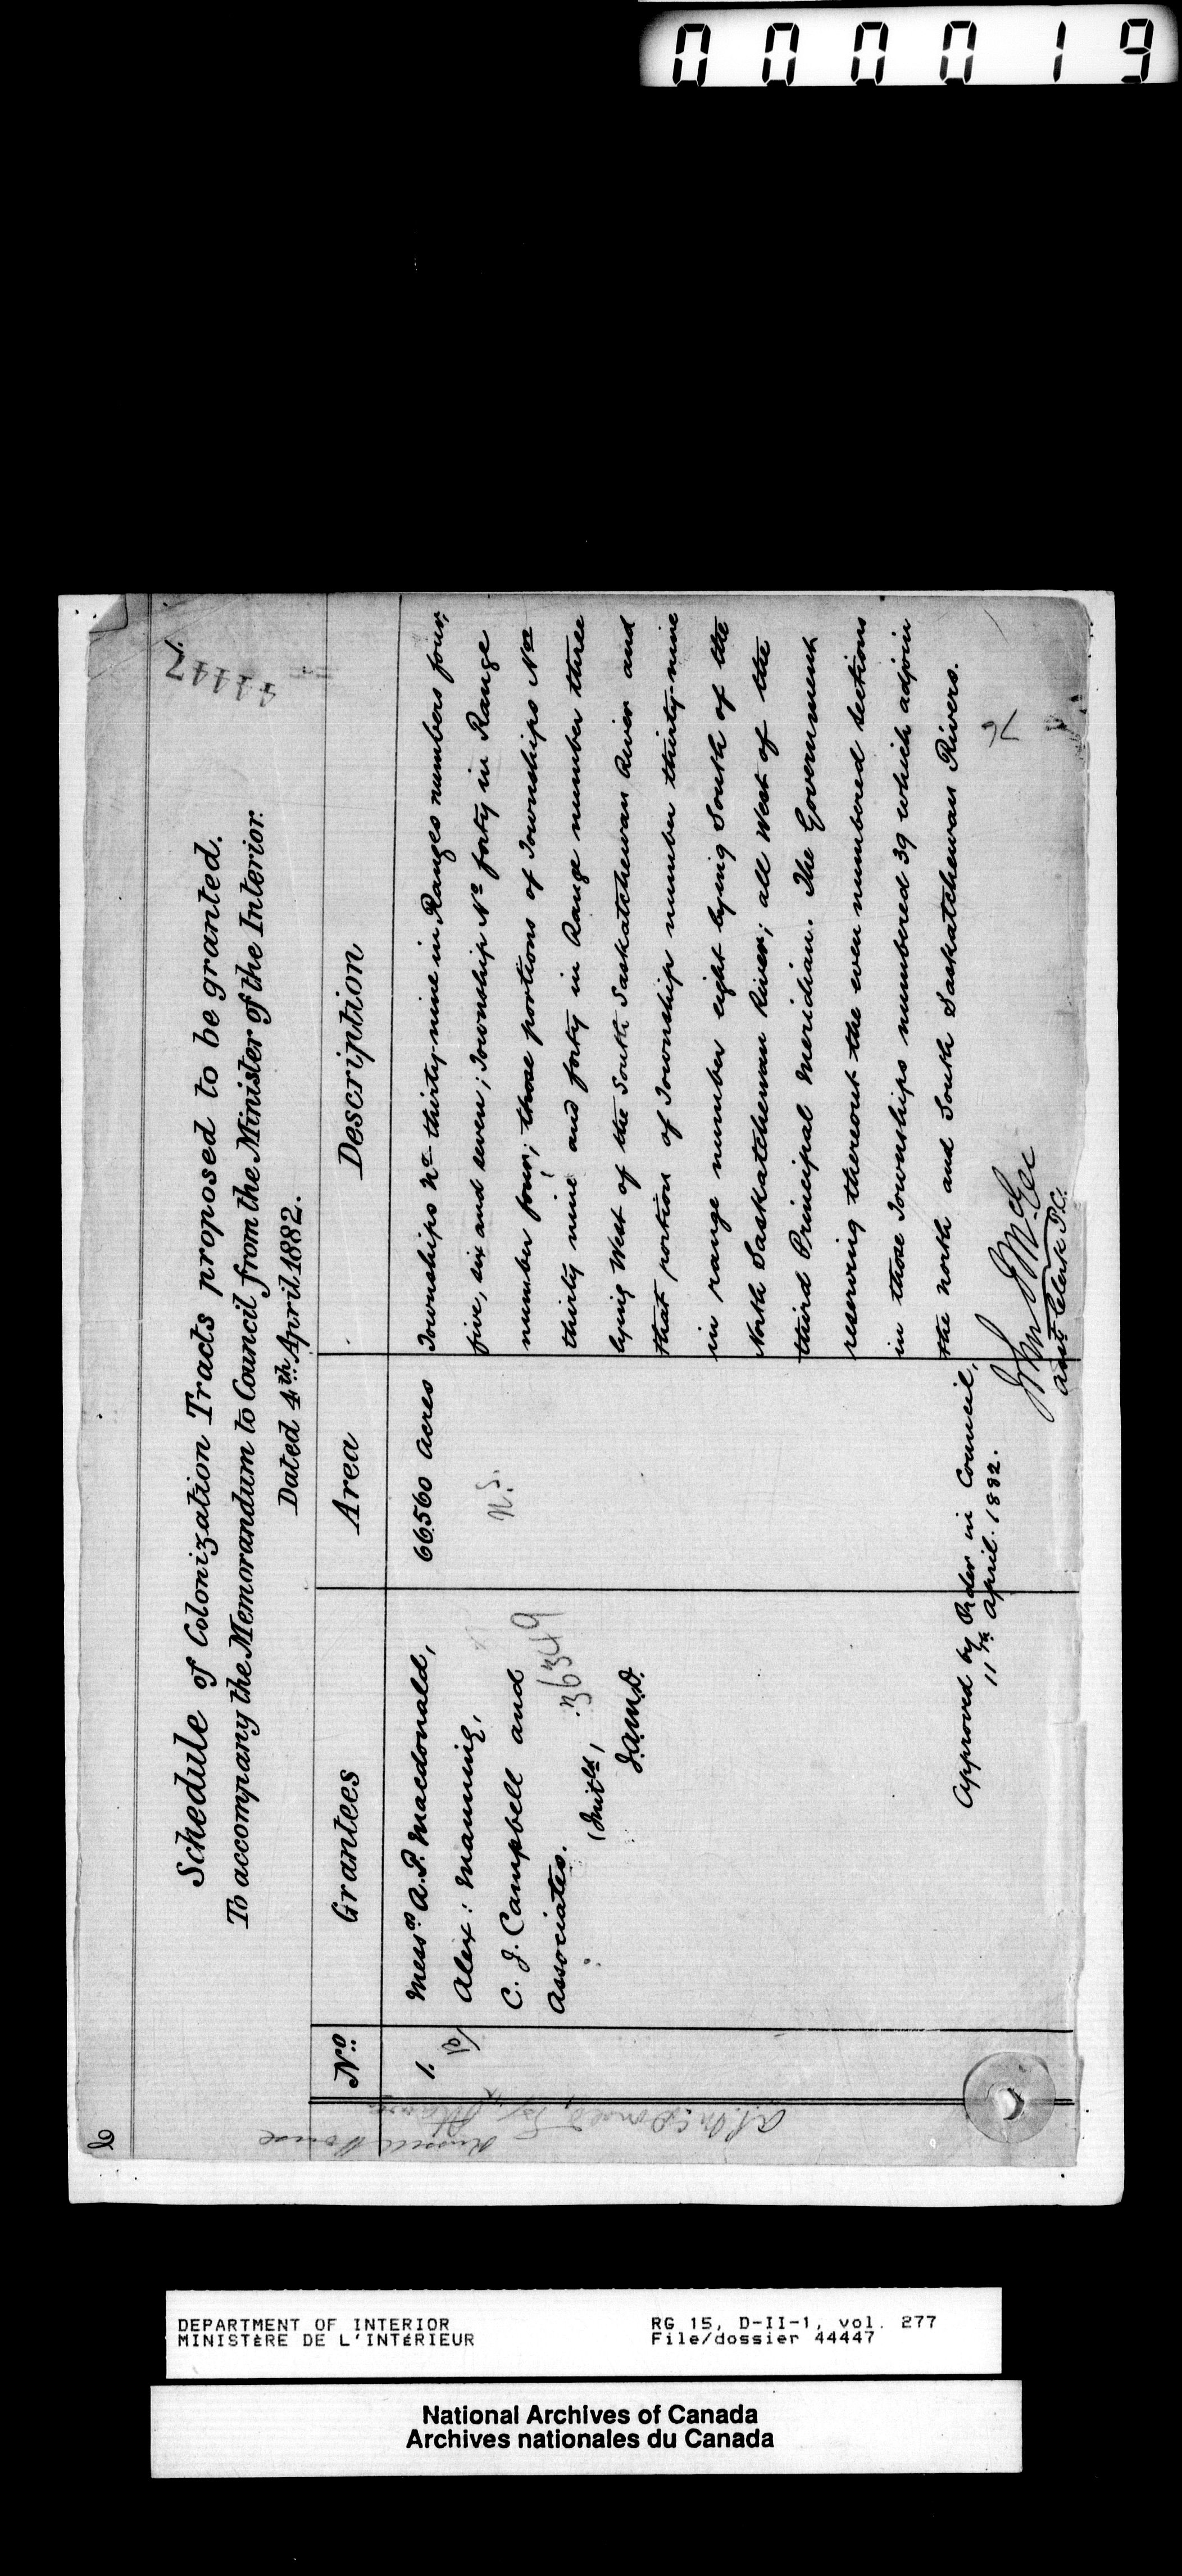 000019
44447
Schedule of Colonization Tracts proposed to be granted.
To accompany the Memorandum to Council from the Minister of the Interior
Dated 4th April 1882.
No. Grantees Area Description
1. Messrs A.P. Macdonald,
Alex: Manning,
C. J. Campbell and
Associates.
(Initld,
J.A.McD.
36349
66560 Acres
N.S.
Townships No thirty-nine in Ranges numbers four,
five, six and seven; Township No forty in Range
number four; those portions of Townships Nos
thirty nine and forty in Range number three
lying West of the South Saskatchewan River and
that portion of Township number thirty-nine
in range number eight lying South of the
North Saskatchewan River; all West of the
third Principal Meridian. The Government
reserving thereout the even numbered sections
in those Townships numbered 39 which adjoin
the north and South Saskatchewan Rivers.
Approved by Order in Council,
11th April. 1882.
John J McGee
Asst Clerk P.C.
76
A.P. McDonald Esq
Russell House
Ottawa
DEPARTMENT OF INTERIOR
MINISTÈRE DE L'INTÉRIEUR
RG 15, D-II-1, vol. 277
File/dossier 44447
National Archives of Canada
Archives nationales du Canada